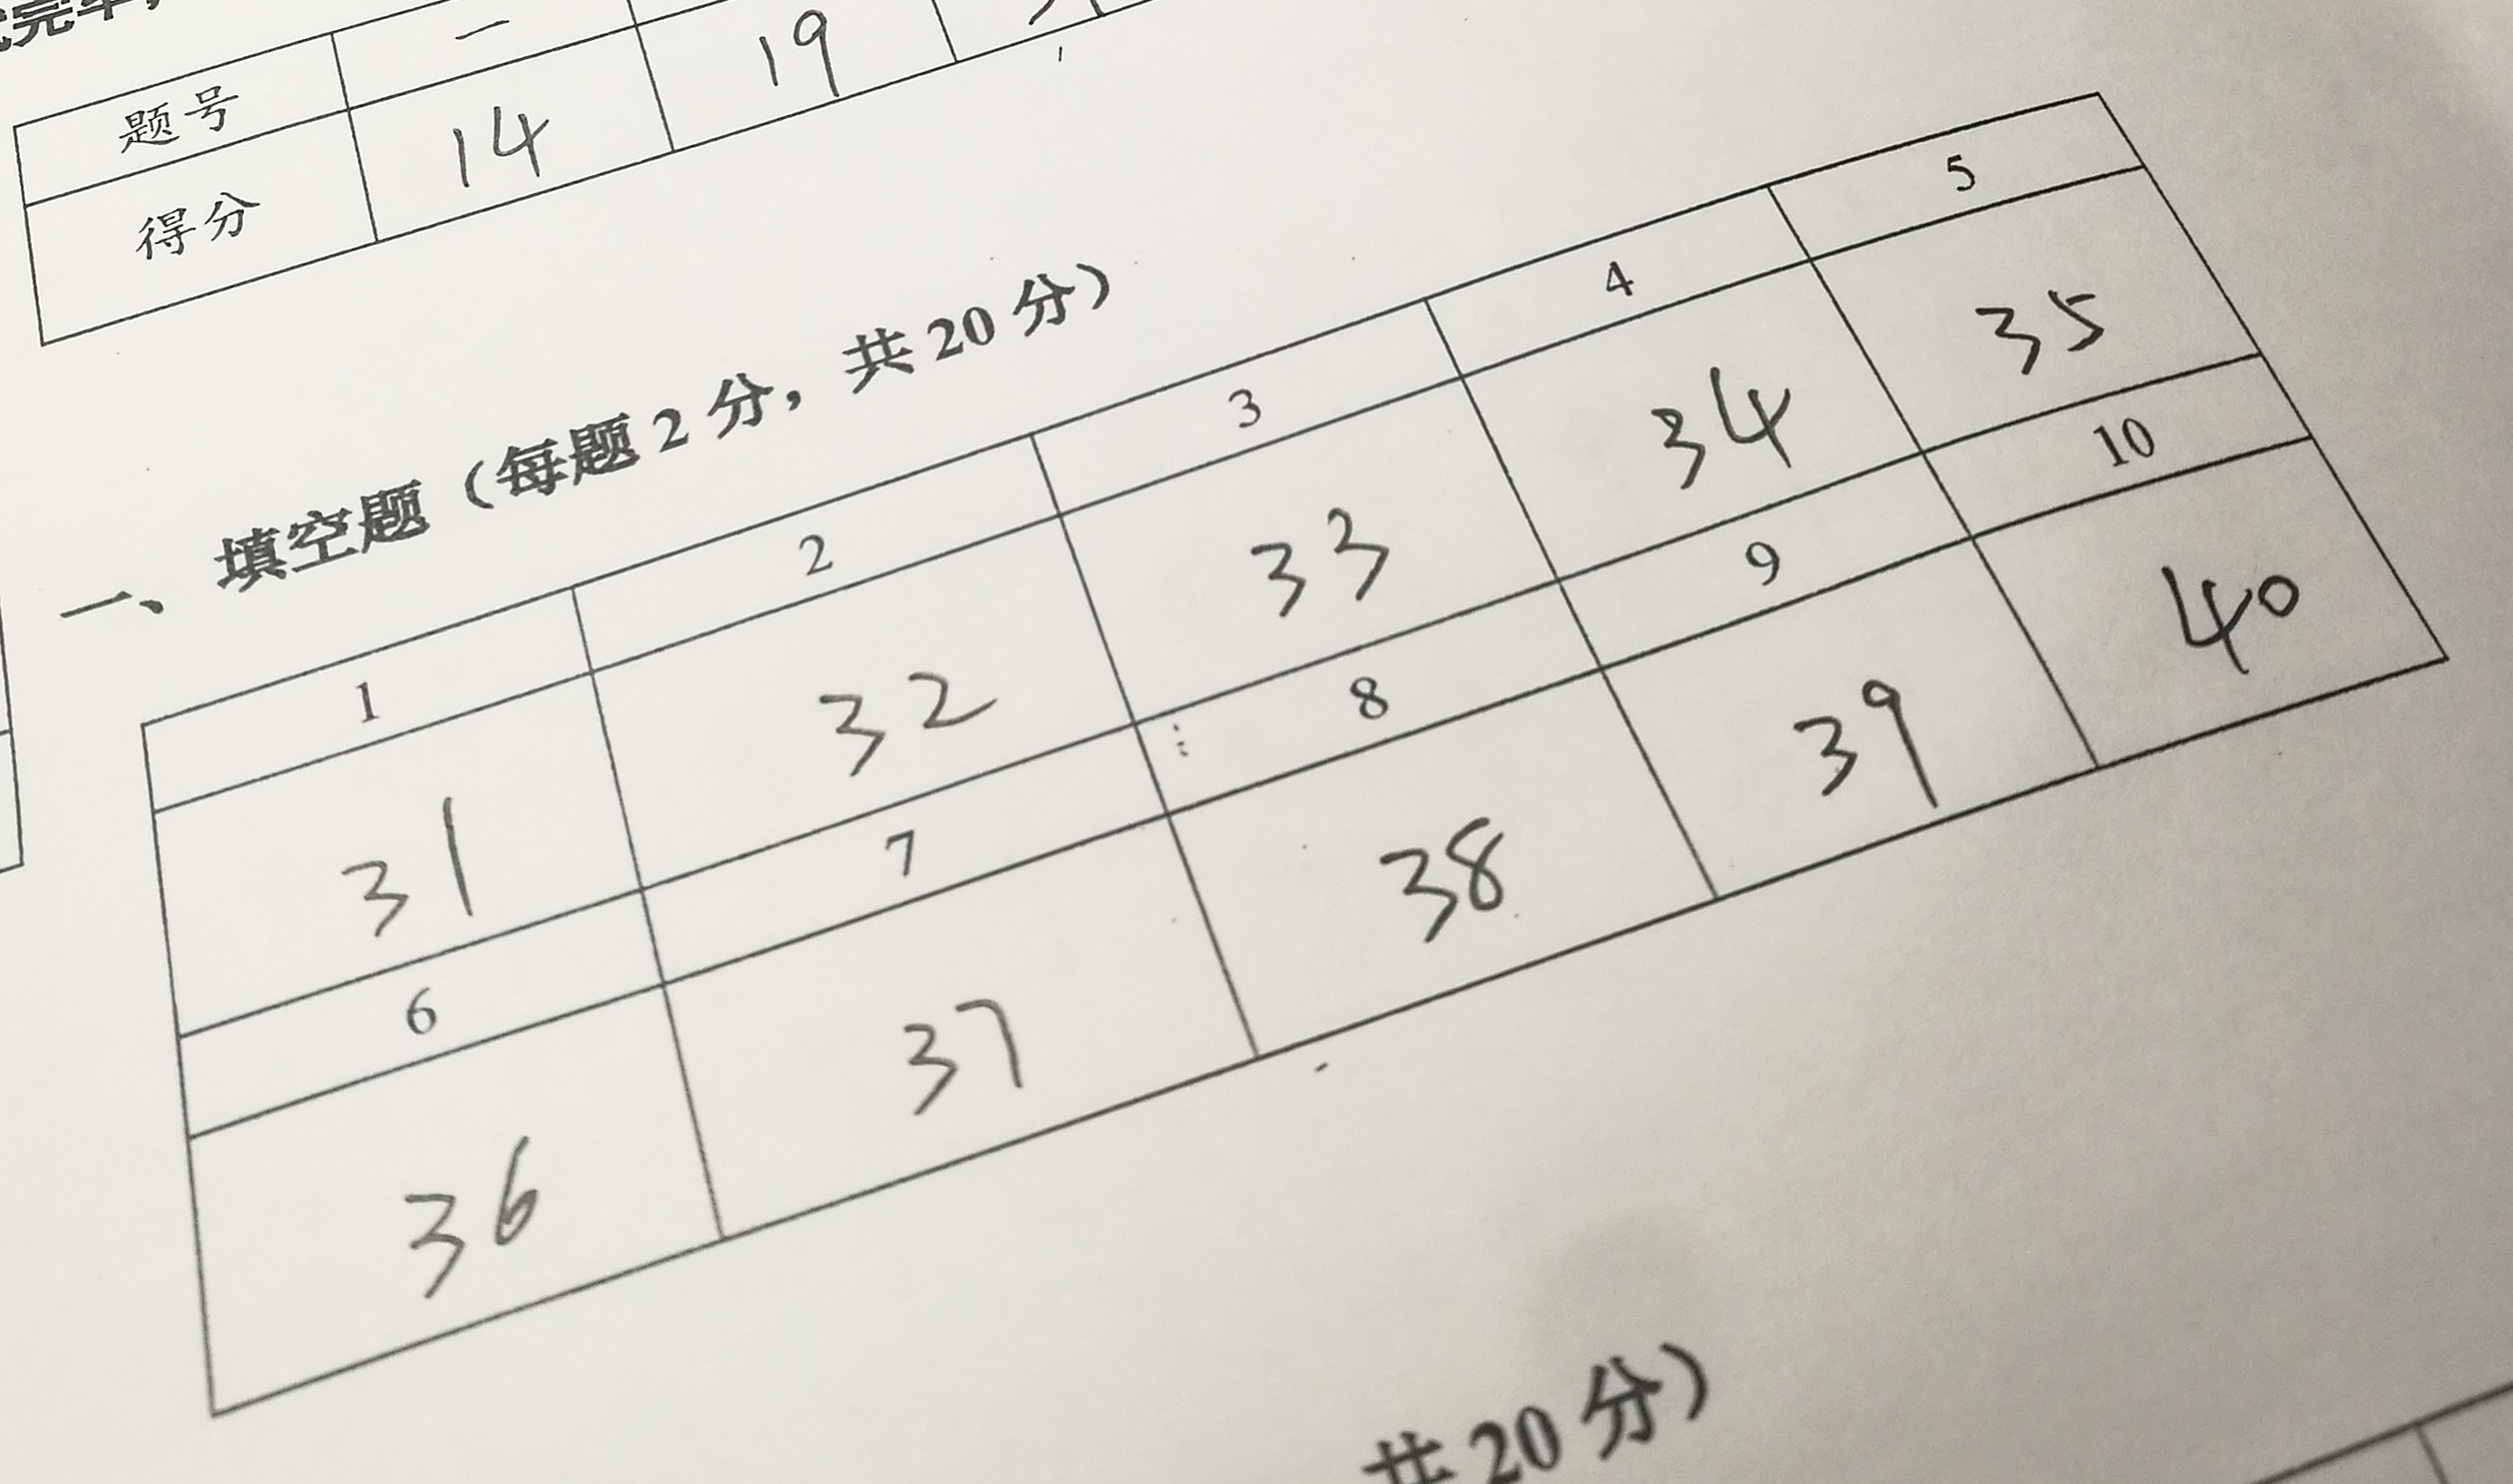 题号 一
得分 14 19
一、填空题（每题2分，共20分）
1 2 3 4 5
31 32 33 34 35
6 7 8 9 10
36 37 38 39 40
共20分）